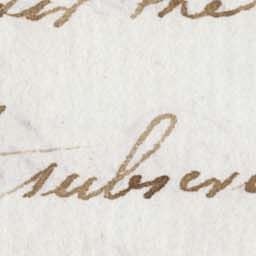 the
subscri